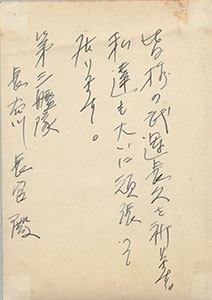 皆様の武運長久を祈ります。
私達も大いに頑張って
居ります。
第二艦隊
長谷川 長官殿